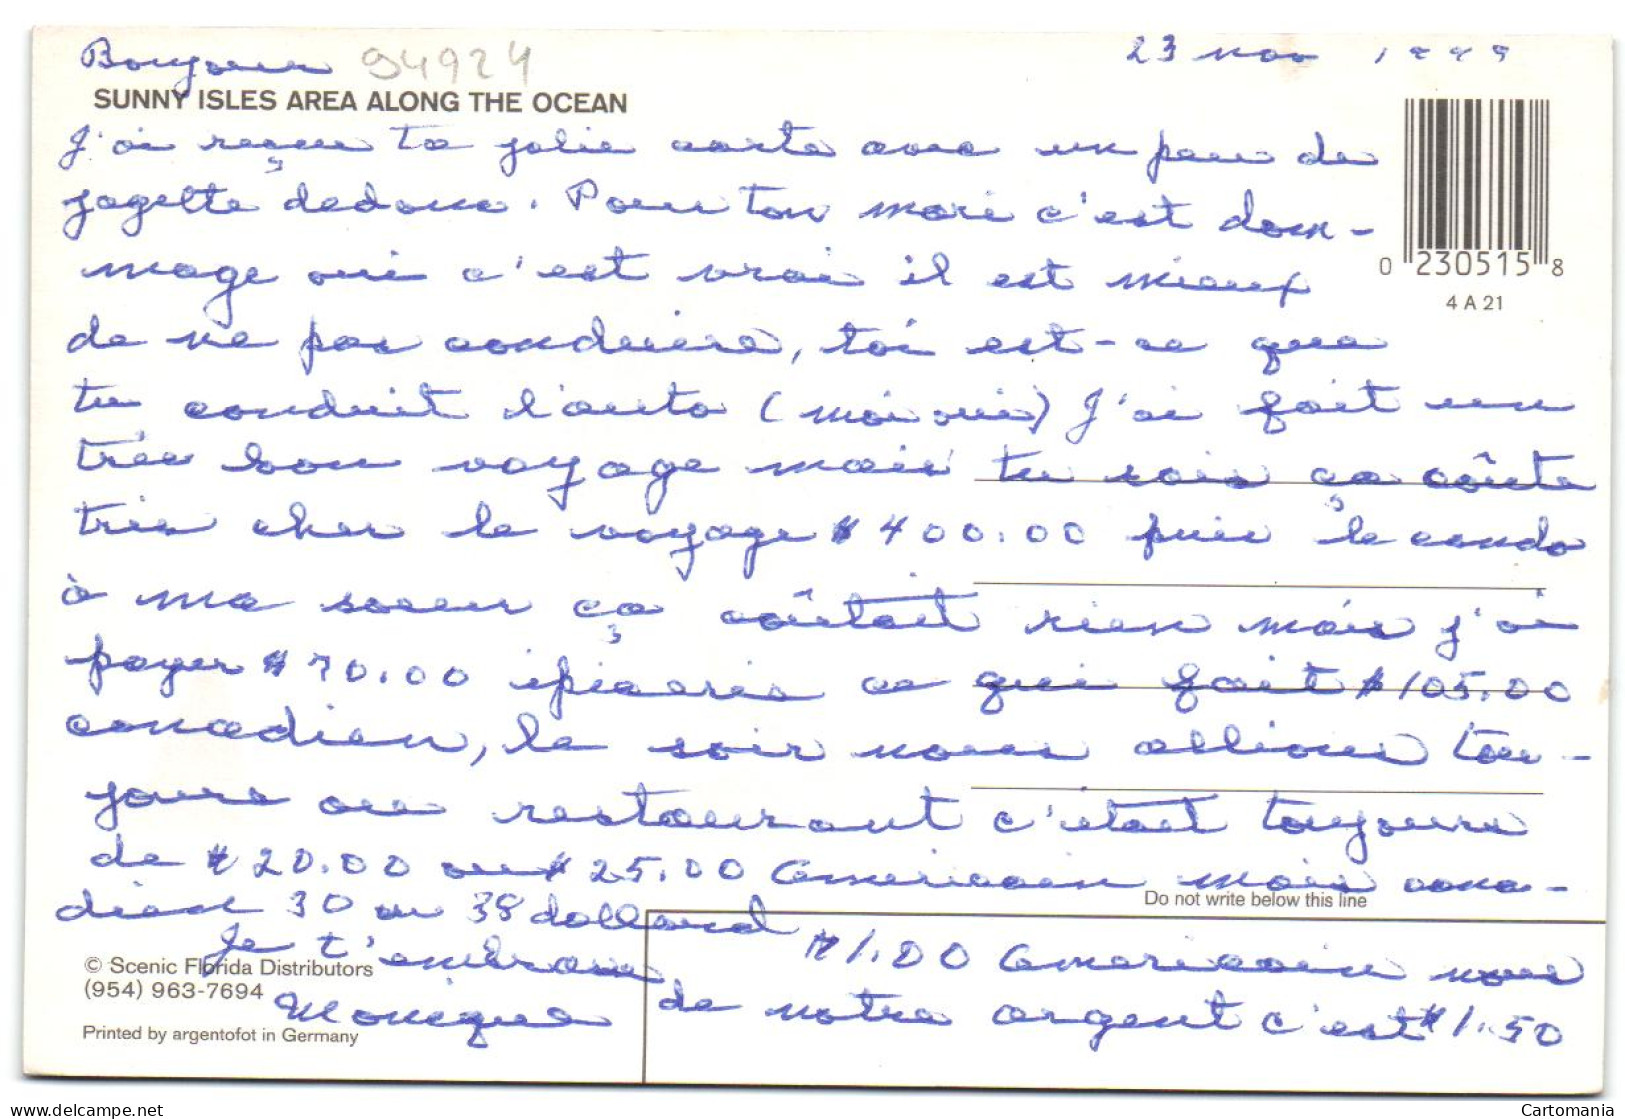 Bonjour 94924 23 nov 1999
SUNNY ISLES AREA ALONG THE OCEAN
J'ai reçue ta jolie carte avec un peu de
jagette dedans. Pour ton mari c'est dom-
mage oui c'est vrai il est mieux
de ne pas conduire, toi est-ce que
tu conduit l'auto (moi oui) J'ai fait un
très bon voyage mais tu sais ça coûte
très cher le voyage $400.00 puis le condo
à ma soeur ça coûtait rien mais j'ai
payer $70.00 épicerie ce qui fait $105.00
canadien, le soir nous allions tou-
jours au restaurant c'était toujours
de $20.00 ou $25.00 Américain mais cana-
dien 30 ou 38 dollard
Je t'embrasse
Monique
$1.00 Américain nous
de notre argent c'est $1.50
0 230515 8
4 A 21
Do not write below this line
© Scenic Florida Distributors
(954) 963-7694
Printed by argentofot in Germany
www.delcampe.net
Cartomania